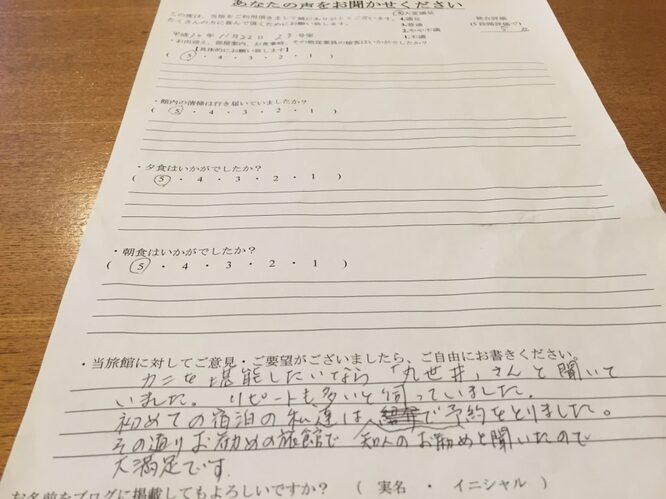 あなたの声をお聞かせください
この度は、当館をご利用頂きまして誠にありがとうございます。
たくさんの方に喜んで頂くためにお願い致します。
⑤大変満足
4.満足
3.普通
2.やや不満
1.不満
総合評価
(5段階評価で)
5 点
11月22日 23号室
・お出迎え、部屋案内、お食事時、その他従業員の接客はいかがでしたか?
【具体的にお願い致します】
( ⑤ ・ 4 ・ 3 ・ 2 ・ 1 )
・館内の清掃は行き届いていましたか?
( ⑤ ・ 4 ・ 3 ・ 2 ・ 1 )
・夕食はいかがでしたか?
( ⑤ ・ 4 ・ 3 ・ 2 ・ 1 )
・朝食はいかがでしたか?
( ⑤ ・ 4 ・ 3 ・ 2 ・ 1 )
・当旅館に対してご意見・ご要望がございましたら、ご自由にお書きください。
カニを堪能したいなら「丸世井」さんと聞いて
いました。 リピートも多いと伺っていました。
初めての宿泊の私達は で予約をとりました。
その通りお勧めの旅館で 知人のお勧めと聞いたので
大満足です。
お名前をブログに掲載してもよろしいですか? ( 実名 ・ イニシャル )